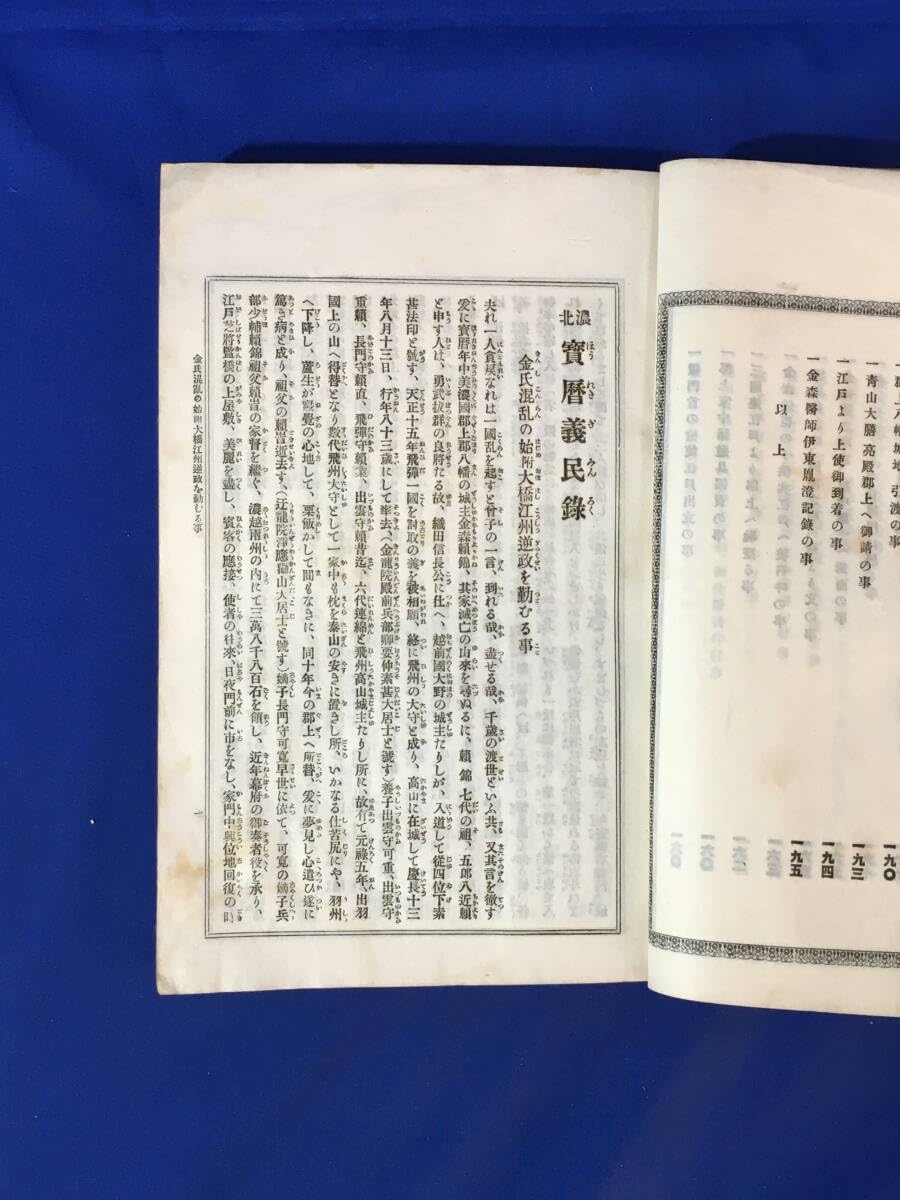 一郡上八幡城地引渡の事
一九〇
一靑山大膳亮殿郡上へ御請の事
一九三
一江戸より上使御到着の事
一九四
一金森醫師伊東胤澄記錄の事
一九五
以上
濃北 寶曆義民錄
金氏混乱の始附大橋江州逆政を勤むる事
夫れ一人貪戻なれは一國乱を起すと曾子の一言、到れる哉、盡せる哉、千歳の渡世といふ共、又其言を徹す
爰に寶曆年中美濃國郡上郡八幡の城主金森賴錦、其家滅亡の由來を尋ぬるに、賴錦七代の祖、五郎八近賴
と申す人は、勇武拔群の良將たる故、織田信長公に仕へ、越前國大野の城主たりしが、入道して從四位下素
甚法印と號す、天正十五年飛驒一國を討取の義を被相願、終に飛州の大守と成り、高山に在城して慶長十三
年八月十三日、行年八十三歳にして卒去、(金龍院殿前兵部卿要仲素甚大居士と號す)養子出雲守可重、出雲守
重賴、長門守賴直、飛驒守賴業、出雲守賴昔迄、六代連綿と飛州高山城主たりし所に、故有て元祿五年、出羽
國上の山へ得替となり數代飛州大守として一家中も枕を泰山の安きに置きし所、いかなる仕苦尻にや、羽州
へ下降し、蘆生が寤覺の心地して、粟飯かして間もなきに、同十年今の郡上へ所替、爰に夢見し心遣ひ遂に
篤き病と成り、祖父の賴旹逝去す、嫡子長門守可寬早世に依て、可寬の嫡子兵
部少輔賴錦祖父賴旹の家督を繼ぐ、濃越兩州の内にて三萬八千八百石を領し、近年幕府の御奏者役を承り、
江戸芝將監橋の上屋敷、美麗を盡し、賓客の應接、使者の往來、日夜門前に市をなし、家門中興位地回復の時
金氏混亂の始附大橋江州逆政を勤むる事